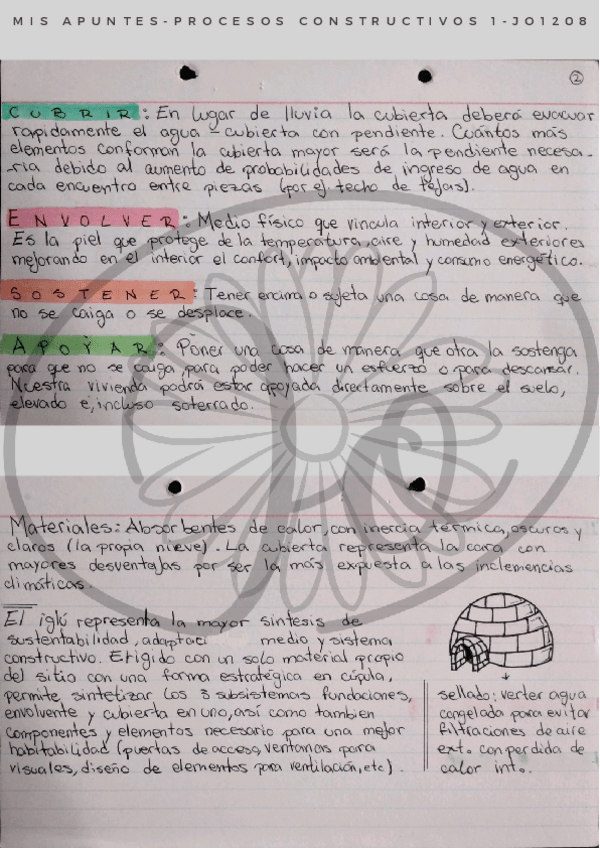 MIS APUNTES-PROCESOS CONSTRUCTIVOS 1-JO1208
2
CUBRIR: En lugar de lluvia la cubierta deberá evacuar
rapidamente el agua - cubierta con pendiente. Cuántos más
elementos conforman la cubierta mayor será la pendiente necesa-
ria debido al aumento de probabilidades de ingreso de agua en
cada encuentro entre piezas (por ej. techo de tejas).
ENVOLVER: Medio físico que vincula interior y exterior.
Es la piel que protege de la temperatura, aire y humedad exteriores
mejorando en el interior el confort, impacto ambiental y consumo energético.
SOSTENER: Tener encima o sujeta una cosa de manera que
no se caiga o se desplace.
APOYAR: Poner una cosa de manera que otra la sostenga
para que no se caiga, para poder hacer un esfuerzo o para descansar.
Nuestra vivienda podrá estar apoyada directamente sobre el suelo,
elevado e, incluso soterrado.
Materiales: Absorbentes de calor, con inercia térmica, oscuros y
claros (la propia nieve). La cubierta representa la cara con
mayores desventajas por ser la más expuesta a las inclemencias
climáticas.
El iglú representa la mayor sintesis de
sustentabilidad, adaptaci medio y sistema
constructivo. Erigido con un solo material propio
del sitio con una forma estratégica en cúpula,
permite sintetizar los 3 subsistemas fundaciones,
envolvente y cubierta en uno, así como tambien
componentes y elementos necesario para una mejor
habitabilidad (puertas de acceso, ventanas para
visuales, diseño de elementos para ventilación, etc).
sellado: verter agua
congelada para evitar
filtraciones de aire
ext. con perdida de
calor int.